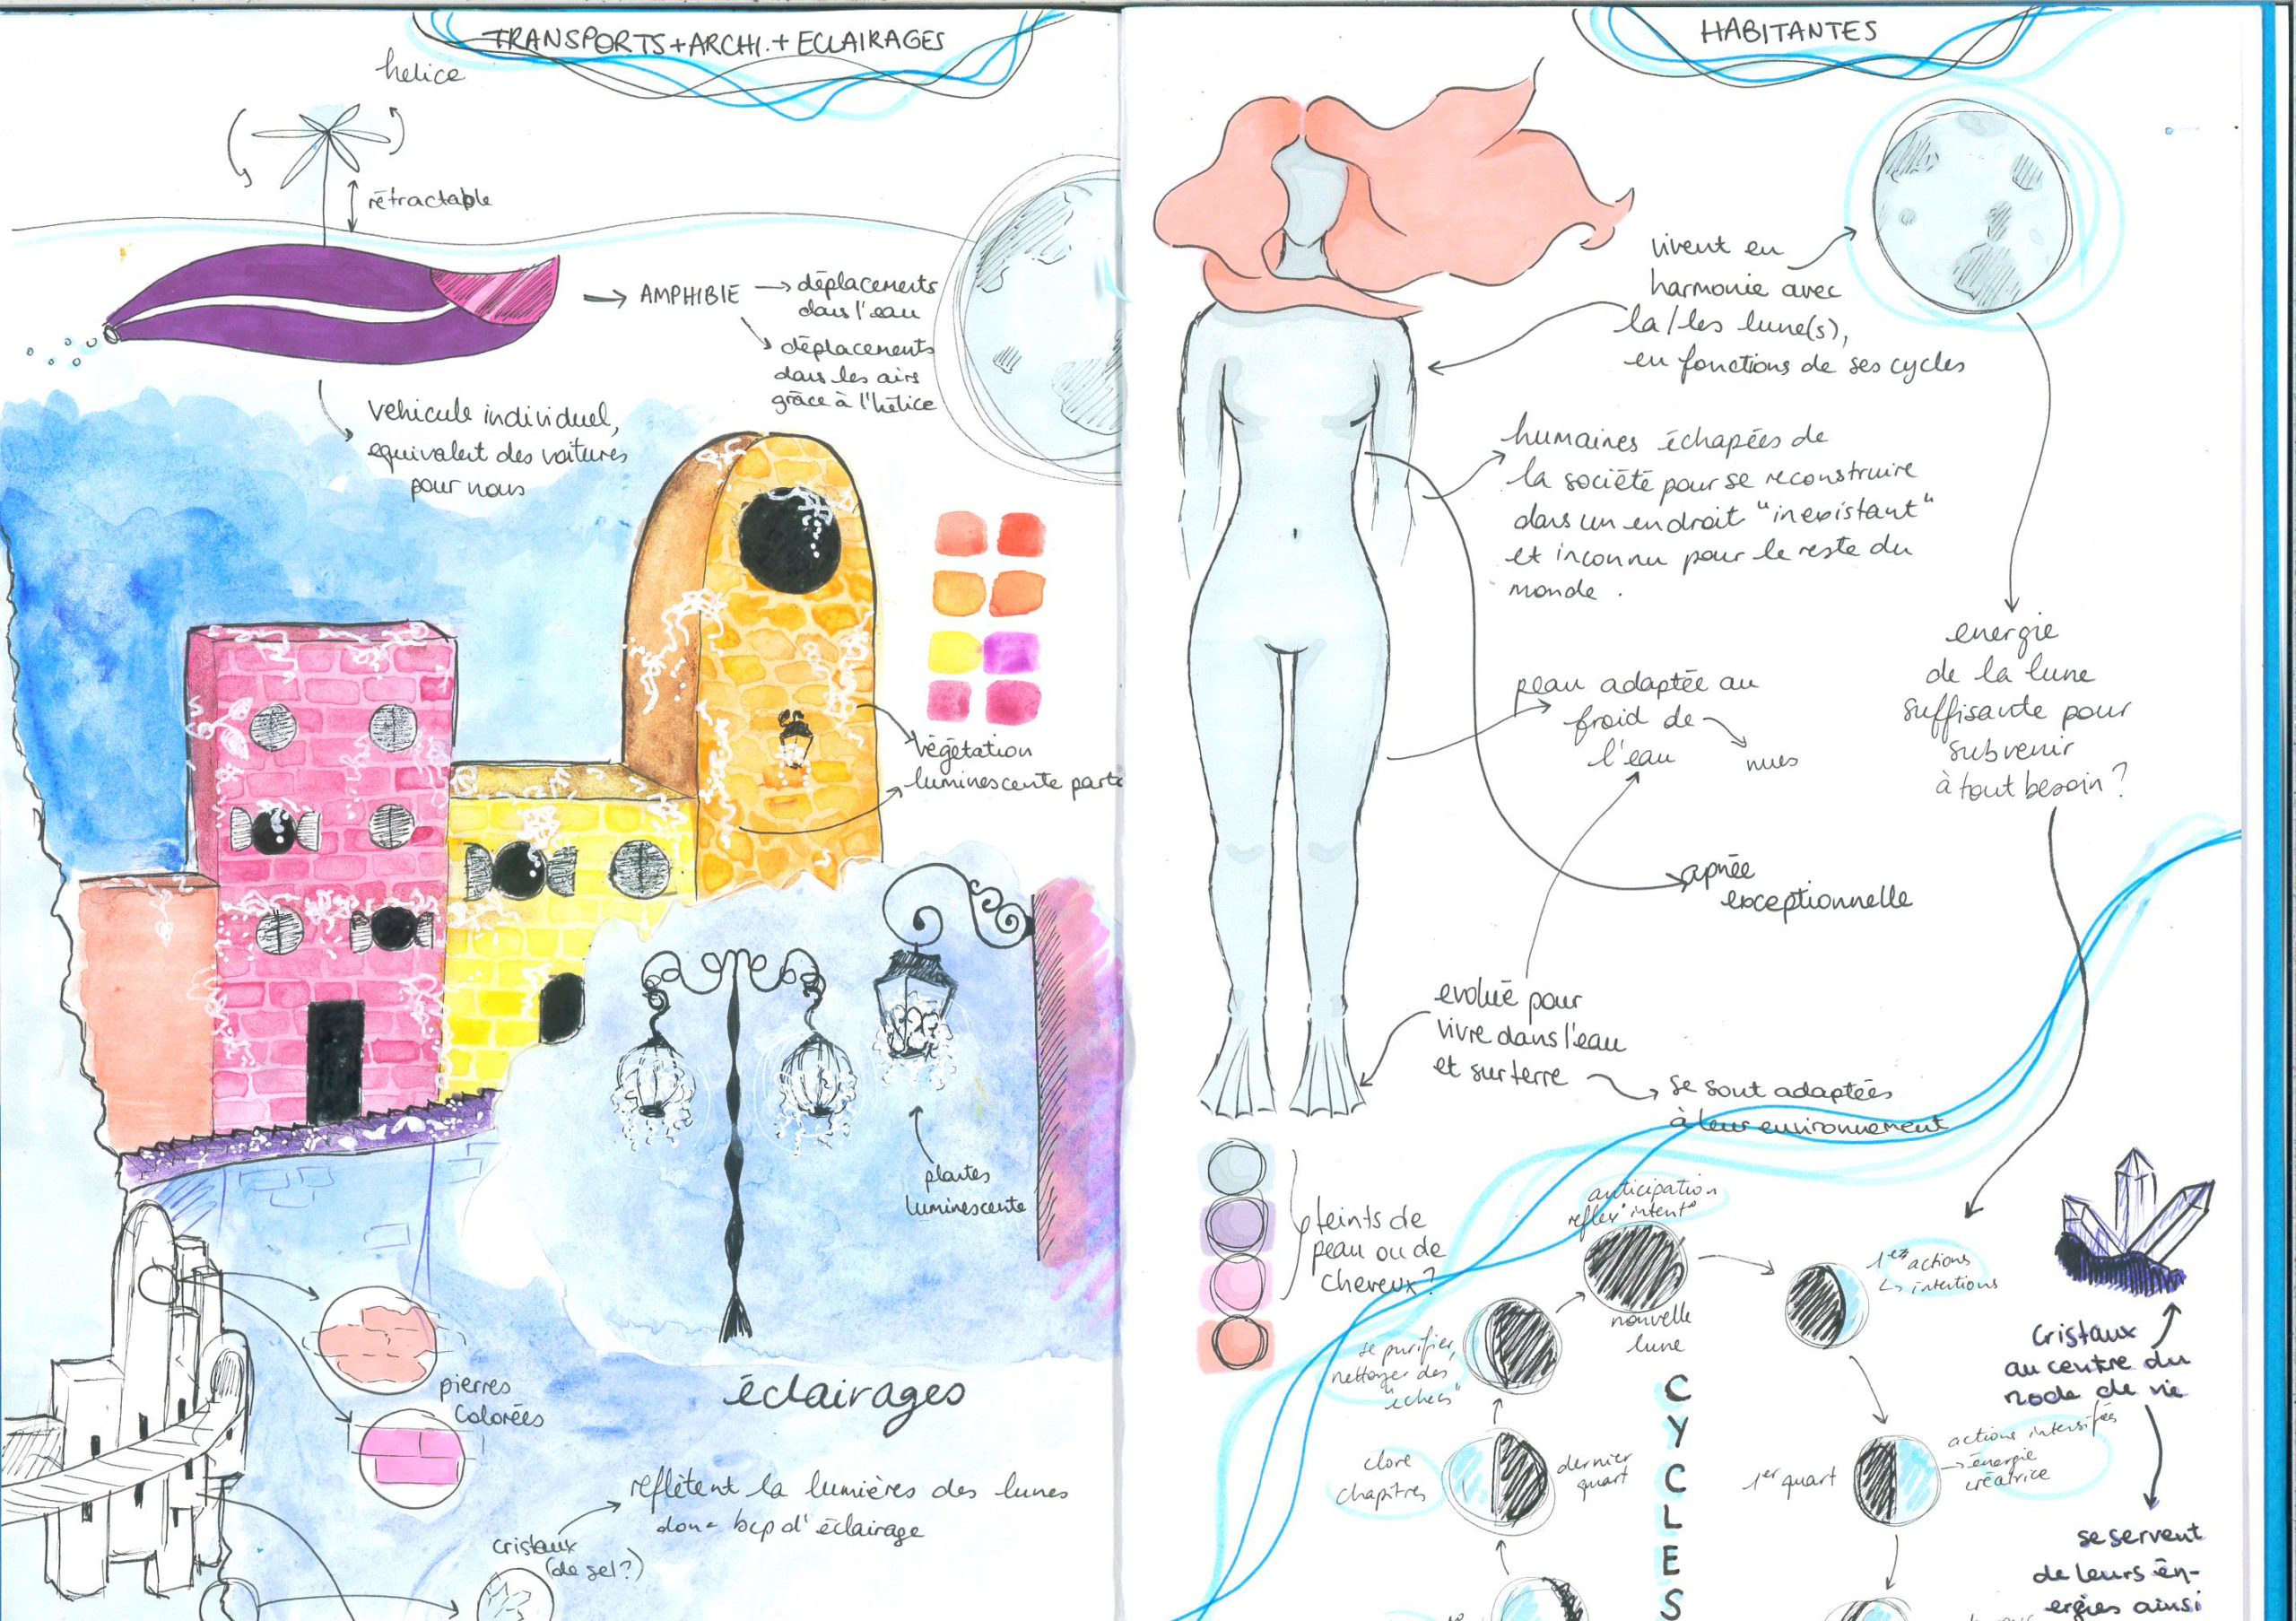 TRANSPORTS+ARCHI.+ECLAIRAGES
helice
rétractable
→ AMPHIBIE → déplacements
dans l'eau
déplacements
dans les airs
grâce à l'hélice
vehicule individuel,
equivalent des voitures
pour nous
végétation
luminescente
plantes
luminescente
éclairages
pierres
colorées
reflètent la lumières des lunes
donc bcp d'éclairage
cristaux
(de sel?)
HABITANTES
vivent en
harmonie avec
la/les lune(s),
en fonctions de ses cycles
humaines échapées de
la société pour se reconstruire
dans un endroit "inexistant"
et inconnu pour le reste du
monde.
energie
de la lune
suffisante pour
subvenir
à tout besoin?
peau adaptée au
froid de
l'eau
nues
apnée
exceptionnelle
evolué pour
vivre dans l'eau
et sur terre
se sont adaptées
à leur environnement
teints de
peau ou de
cheveux?
anticipation
nouvelle
lune
1ères actions
↳ intentions
se purifier,
nettoyer des
"echecs"
clore
chapitres
dernier
quart
CYCLES
1er quart
actions intensifiées
→ énergie
créatrice
cristaux
au centre du
mode de vie
se servent
de leurs én-
ergies ainsi